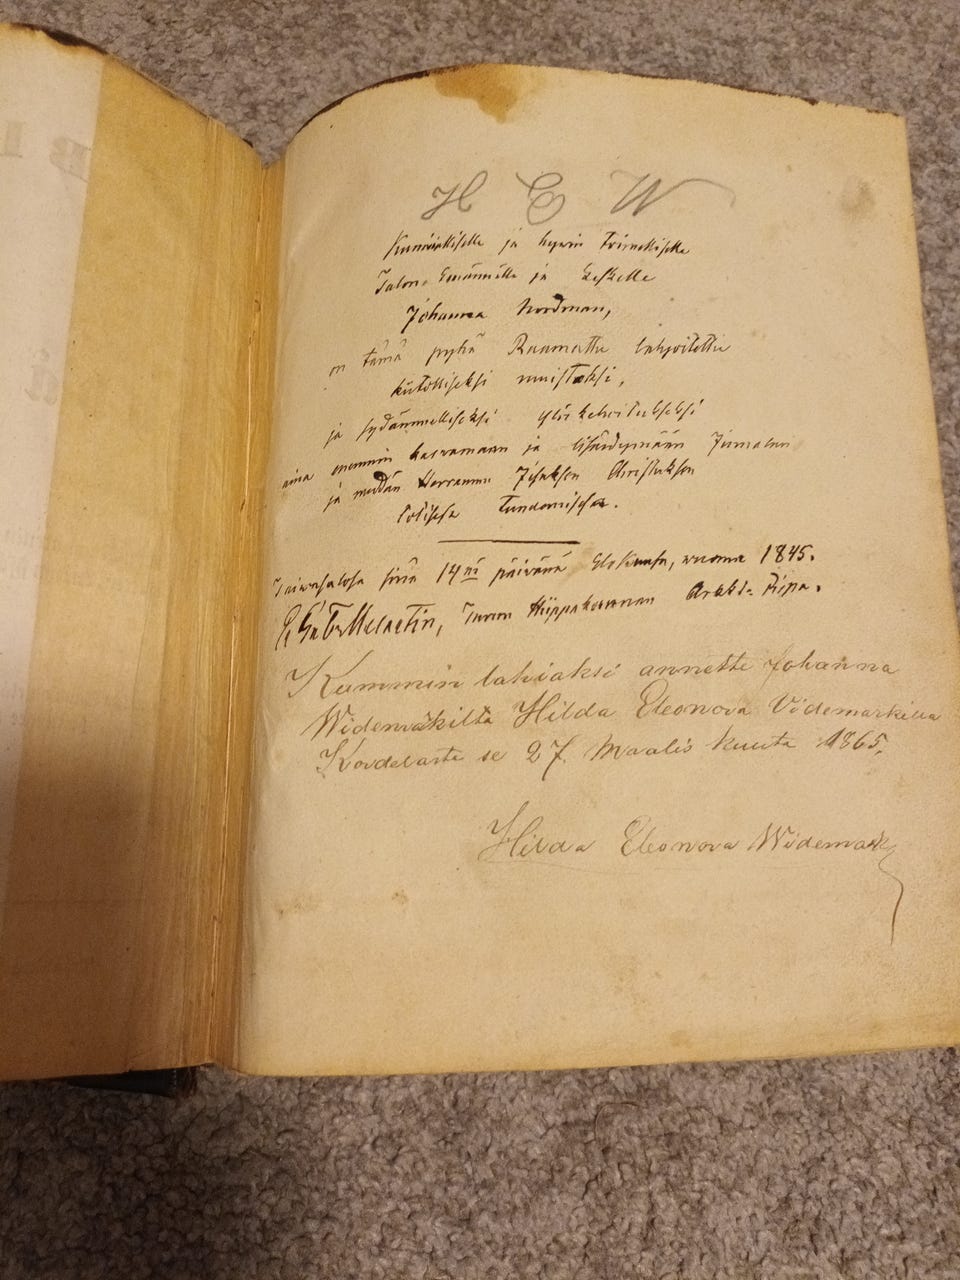 H E W
Kunniakkaalle ja hywin toimelliselle
Talon Emännälle ja Leskelle
Johanna Nordman,
on tämä pyhä Raamattu lahjoitettu
kiitolliseksi muistoksi,
ja sydämmelliseksi
aina enemmin kaswamaan ja lisäändymään Jumalan
ja meidän Herramme Jesuksen Christuksen
Tundemisessa.
Taiwasalosa sinä 14nä päiwänä Elokuusa, wuonna 1845.
Turun Hiippakunnan Arkki-Pispa.
Kummin lahjaksi annettu Johanna
Hilda Eleonora Videmarkilla
se 27 Maalis kuuta 1865.
Hilda Eleonora Widemark